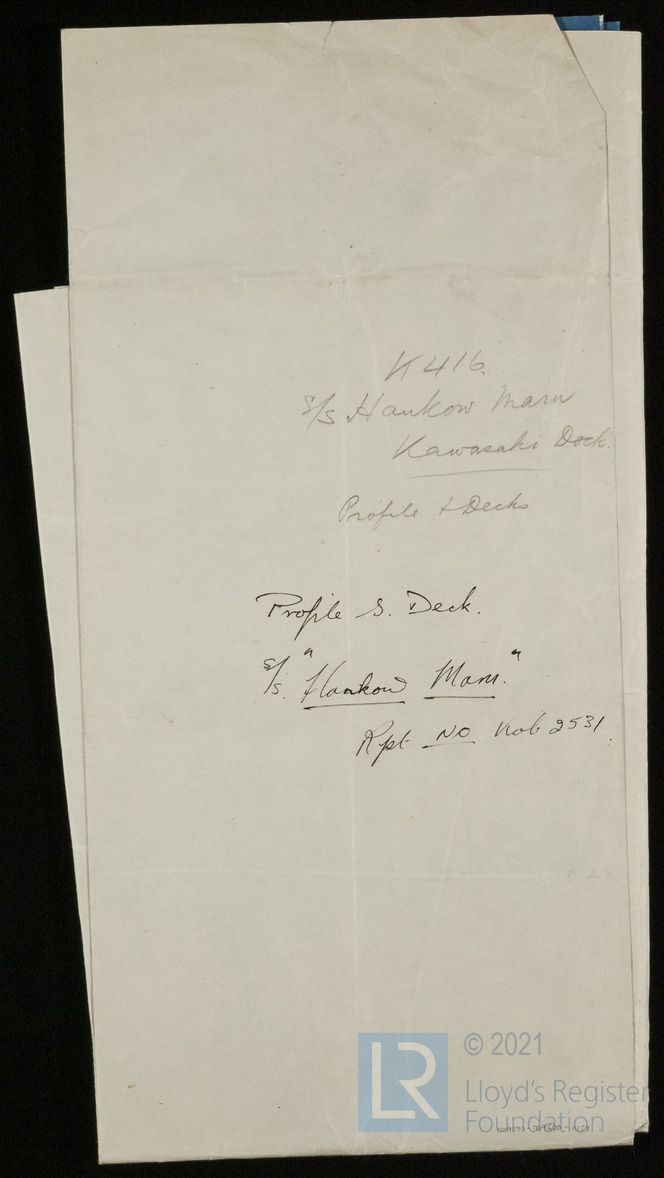 K 416.
S/S Hankow Maru
Kawasaki Dock.
Profile & Decks
Profile & Deck.
S/S. "Hankow Maru."
Rpt No Kob 2531.
LR
© 2021
Lloyd's Register
Foundation